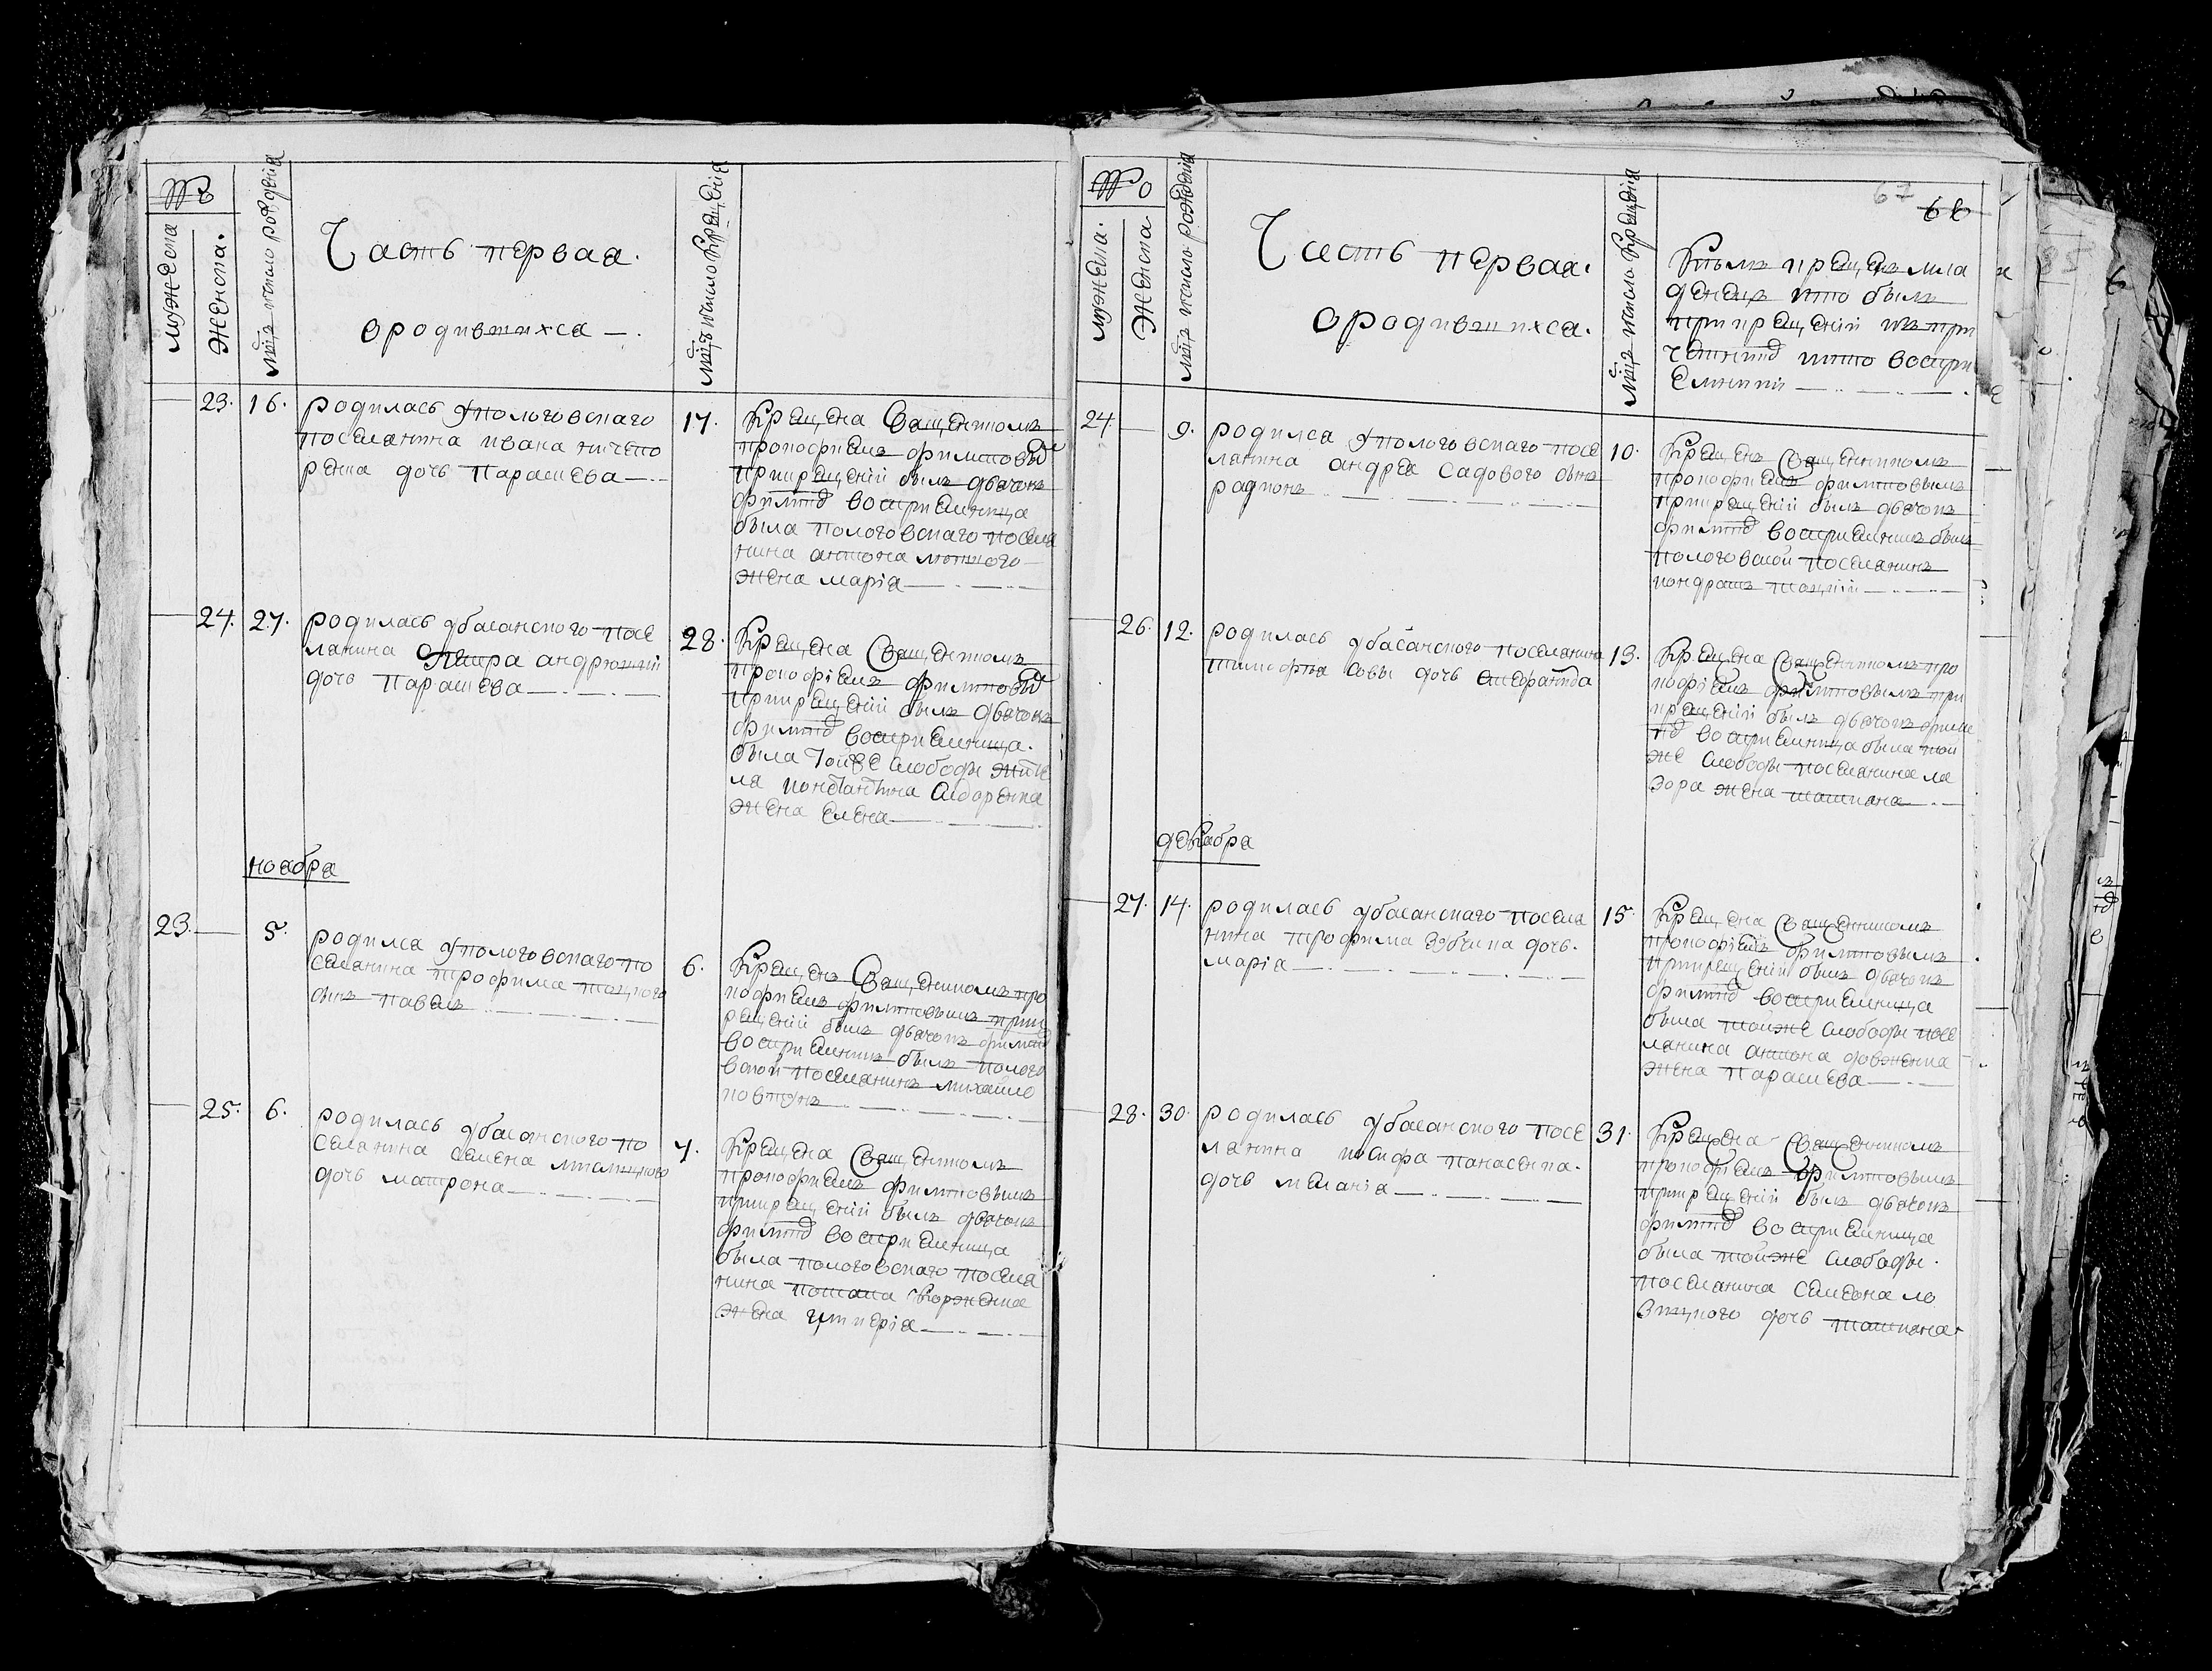 №
мужеска
женска.
мцъ и число рождения
Часть первая.
о родившихся
мцъ и число крещения
23. 16.
родилась у пологовскаго
поселянина ивана ничепо
ренка дочь Параскева
17.
Крещена Священником
прокофиемъ филиповы
при крещении былъ дьячокъ
восприемница
была пологовскаго поселя
нина антона
жена мария
24. 27.
родилась у басанского посе
лянина Петра андрющии
дочь Параскева
28
Крещена Священником
прокофиемъ филиповы
при крещении былъ дьячокъ
восприемница.
была тойже слободы жите
ля константина сидоренка
жена елена
ноября
23. 5.
родился у пологовскаго по
селянина трофима тацкого
сынъ павелъ
6.
Крещенъ Священником про
кофиемъ филиповымъ при к
рещении былъ дьячокъ
восприемникъ былъ полого
вской поселянинъ михайло
ковтунъ
25. 6.
родилась у басанского по
селянина семена
дочь матрона
7.
Крещена Священником
прокофиемъ филиповымъ
при крещении былъ дьячокъ
восприемница
была пологовскаго поселя
нина потапа коржинка
жена гликерия
№
мужеска.
женска
мцъ и число рождения
Часть первая.
о родившихся.
мцъ и число крещения
67
68
Кемъ крещенъ мла
денецъ кто былъ
при крещении изъ при
четниковъ и кто воспри
емники
24. 9.
родился у пологовскаго посе
лянина андрея садового сынъ
радионъ
10.
Крещенъ Священникомъ
прокофиемъ филиповымъ
при крещении былъ дьячокъ
восприемникъ былъ
пологовской поселянинъ
кондратъ тацкии
26. 12.
родилась у басанского поселянина
тимофея совы дочь
13.
Крещена Священникомъ про
кофиемъ филиповымъ при
крещении былъ дьячокъ
восприемница была той
же слободы поселянина ла
зора жена татияна
декабря
27. 14.
родилась у басанского поселя
нина трофима зубчика дочь.
мария
15.
Крещена Священником
прокофиемъ филиповымъ
при крещении былъ дьячокъ
восприемница
была тойже слободы посе
лянина антона довженка
жена параскева
28. 30.
родилась у басанского посе
лянина иосифа панасенка.
дочь мелания
31.
Крещена Священником
прокофиемъ филиповымъ
при крещении былъ дьячокъ
восприемница
была тойже слободы.
поселянина семеона ло
зицкого дочь татияна.